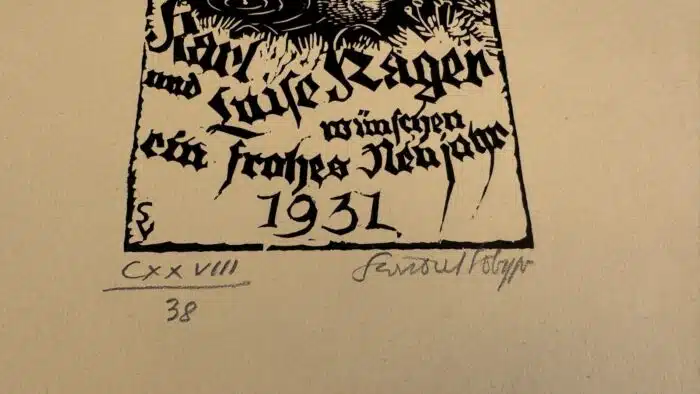 Karl
und Luise Kager
wünschen
ein frohes Neujahr
1931
SV
CXXVIII
38